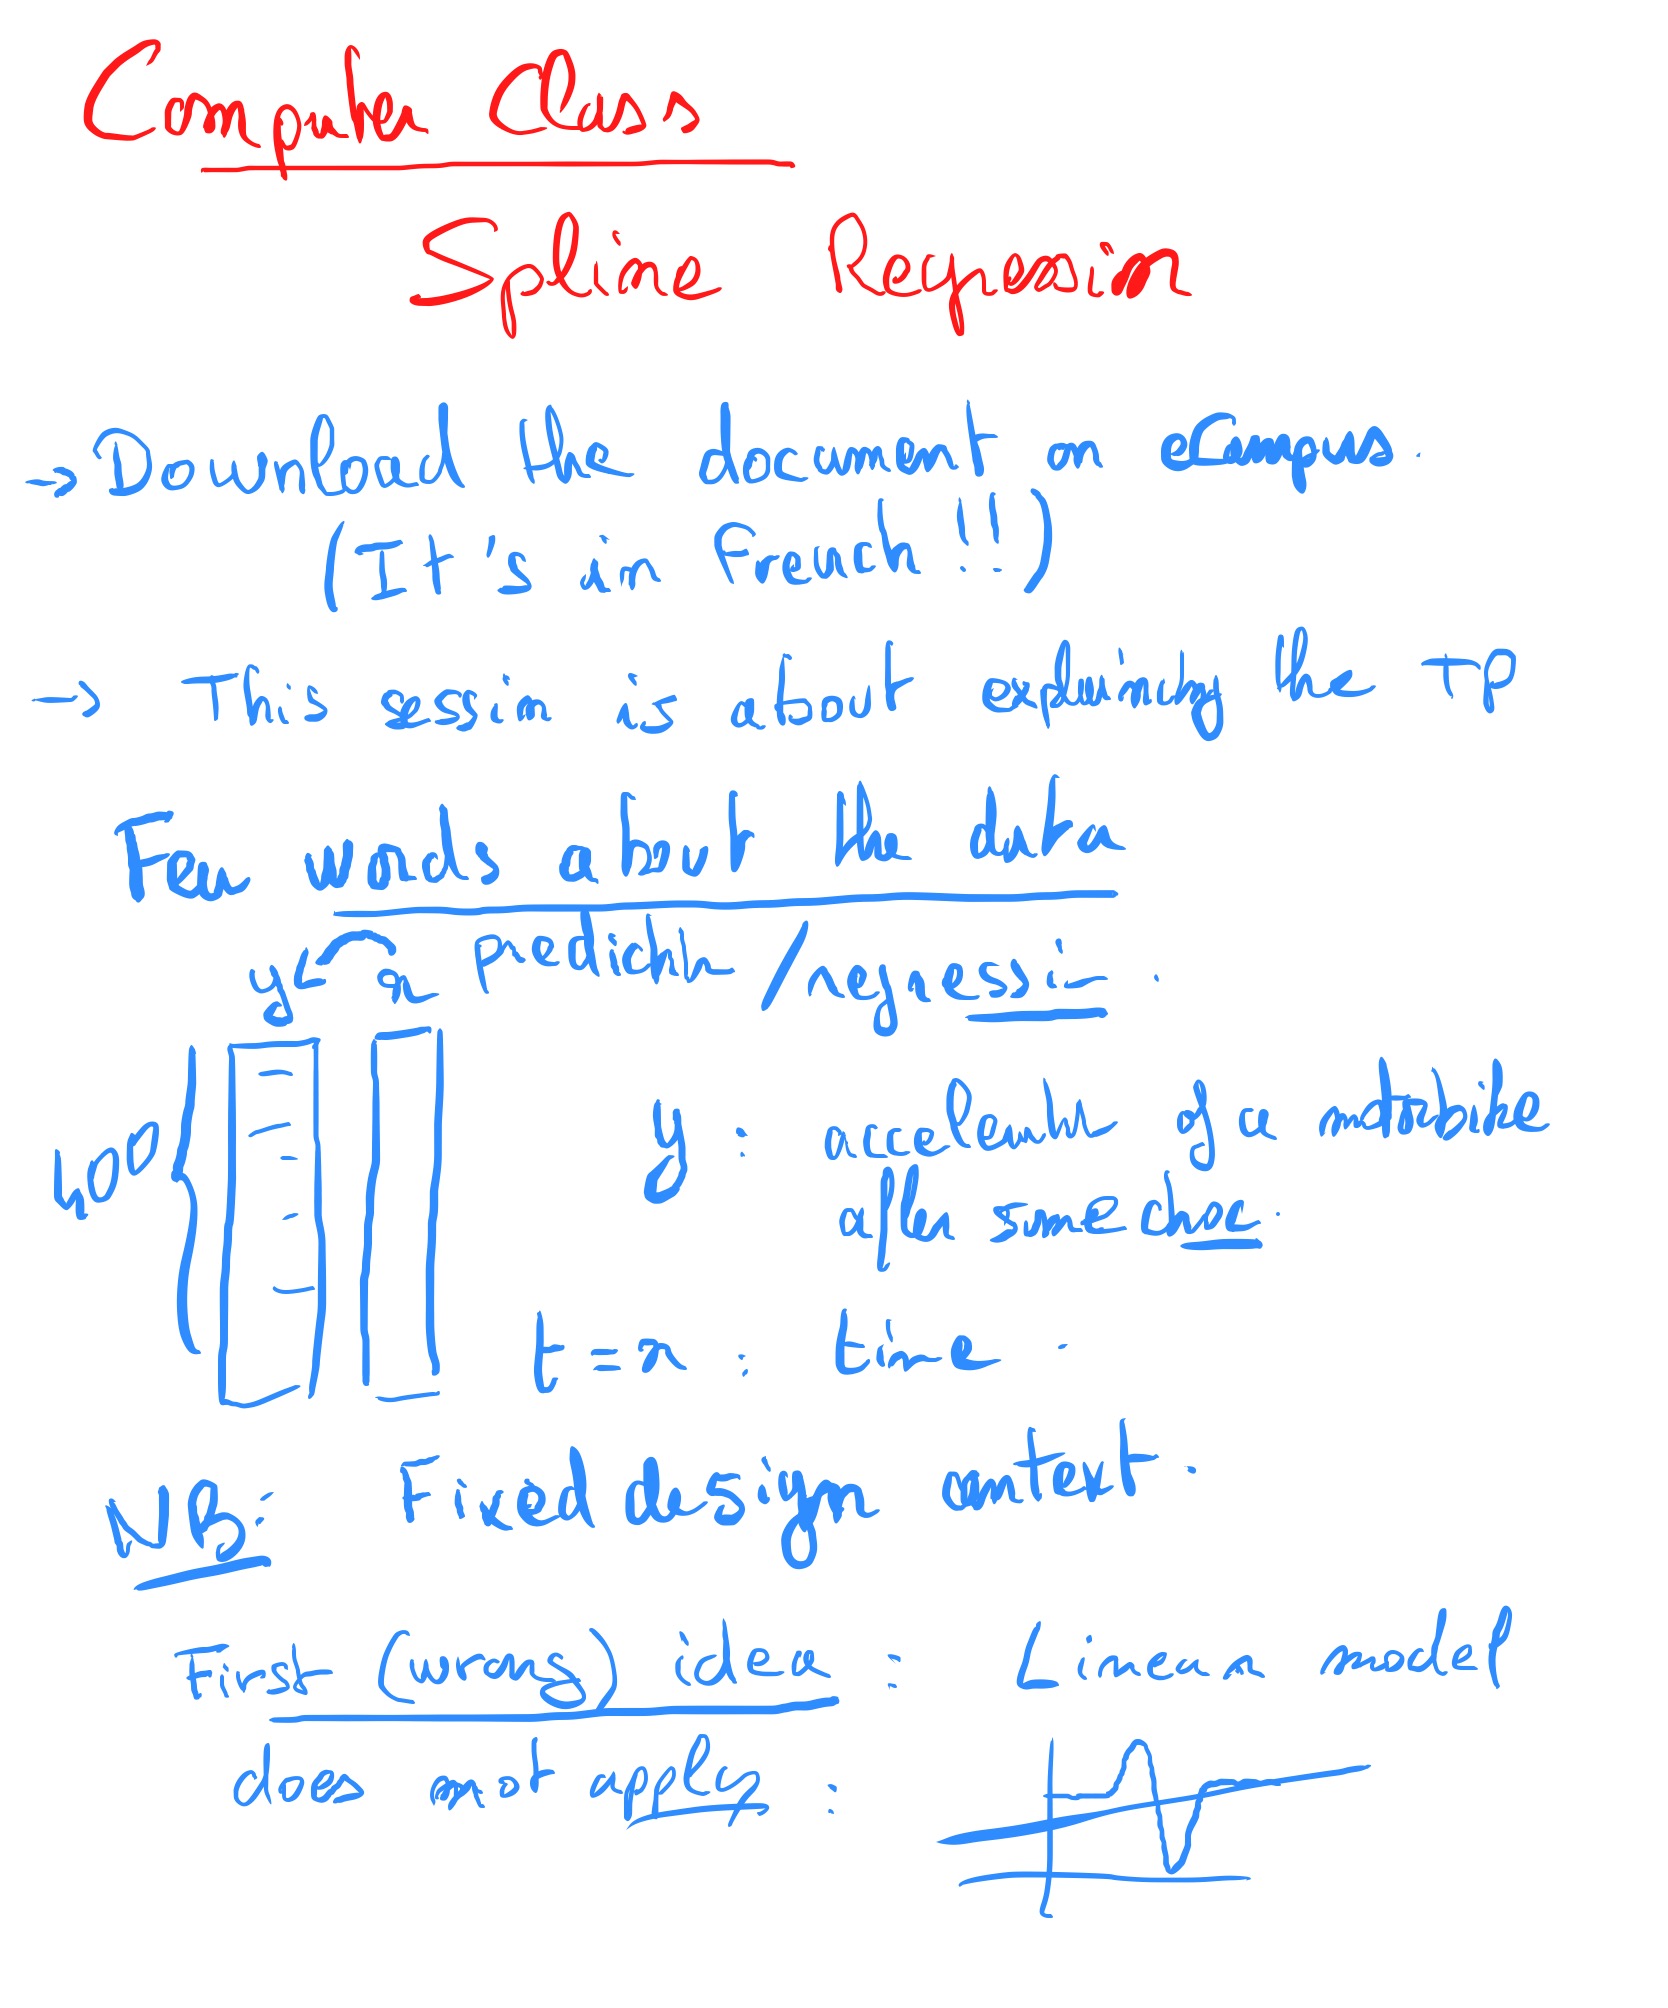 Computer Class
Spline Regression
→ Download the document on eCampus.
(It's in French!!)
→ This session is about explaining the TP
Few words about the data
y x prediction / regression.
400
y : acceleration of a motorbike
after some choc.
t = x : time.
NB: Fixed design context.
First (wrong) idea : Linear model
does not apply :